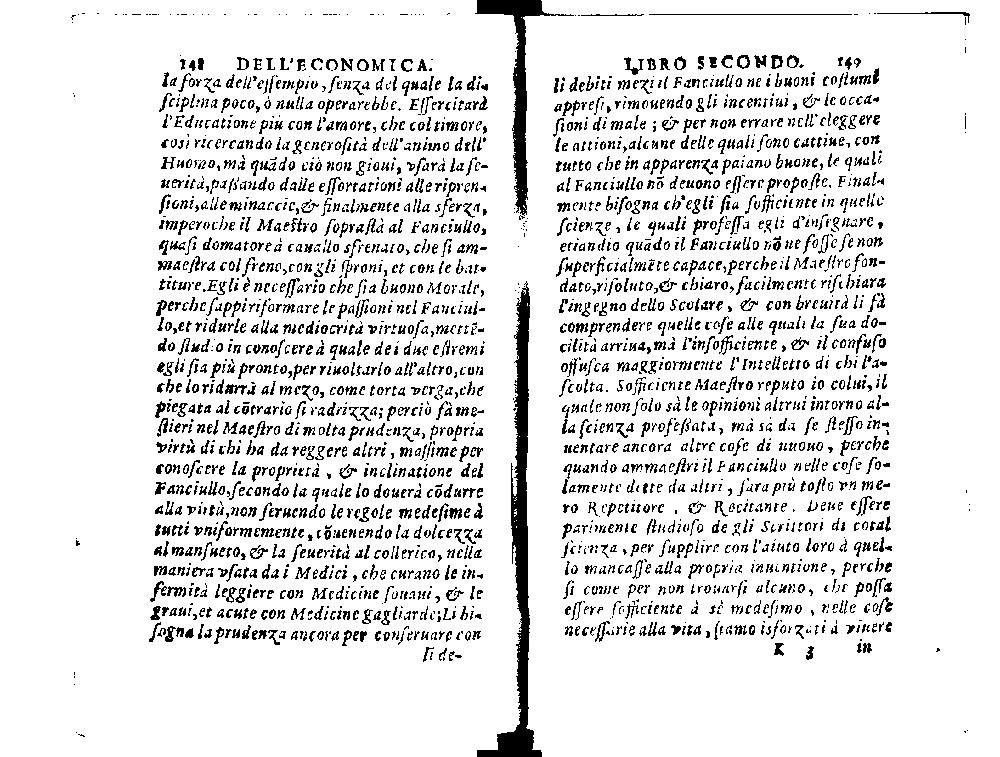 148 DELL'ECONOMICA.
la forza dell'essempio, senza del quale la di-
sciplina poco, ò nulla operarebbe. Essercitarà
l'Educatione più con l'amore, che col timore,
così ricercando la generosità dell'animo dell'
Huomo, mà quādo ciò non gioui, vsarà la se-
uerità, passando dalle essortationi alle ripren-
sioni, alle minaccie, & finalmente alla sferza,
imperoche il Maestro soprastà al Fanciullo,
quasi domatore à cauallo sfrenato, che si am-
maestra col freno, con gli sproni, et con le bat-
titure. Egli è necessario che sia buono Morale,
perche sappi riformare le passioni nel Fanciul-
lo, et ridurle alla mediocrità virtuosa, mettē-
do studio in conoscere à quale de i due estremi
egli sia più pronto, per riuoltarlo all'altro, con
che lo ridurrà al mezo, come torta verga, che
piegata al cōtrario si radrizza; perciò fà me-
stieri nel Maestro di molta prudenza, propria
virtù di chi ha da reggere altri, massime per
conoscere la proprietà, & inclinatione del
Fanciullo, secondo la quale lo douerà cōdurre
alla virtù, non seruendo le regole medesime à
tutti vniformemente, cōuenendo la dolcezza
al mansueto, & la seuerità al collerico, nella
maniera vsata da i Medici, che curano le in-
fermità leggiere con Medicine soaui, & le
graui, et acute con Medicine gagliarde; Li bi-
sogna la prudenza ancora per conseruare con
li de-
LIBRO SECONDO. 149
li debiti mezi il Fanciullo ne i buoni costumi
appresi, rimouendo gli incentiui, & le occa-
sioni di male; & per non errare nell'eleggere
le attioni, alcune delle quali sono cattiue, con
tutto che in apparenza paiano buone, le quali
al Fanciullo nō deuono essere proposte. Final-
mente bisogna ch'egli sia sofficiente in quelle
scienze, le quali professa egli d'insegnare,
etiandio quādo il Fanciullo nō ne fosse se non
superficialmēte capace, perche il Maestro fon-
dato, risoluto, & chiaro, facilmente rischiara
l'ingegno dello Scolare, & con breuità li fà
comprendere quelle cose alle quali la sua do-
cilità arriua, mà l'insofficiente, & il confuso
offusca maggiormente l'Intelletto di chi l'a-
scolta. Sofficiente Maestro reputo io colui, il
quale non solo sà le opinioni altrui intorno al-
la scienza professata, mà sà da se stesso in-
uentare ancora altre cose di nuouo, perche
quando ammaestri il Fanciullo nelle cose so-
lamente dette da altri, sara più tosto vn me-
ro Repetitore, & Recitante. Deue essere
parimente studioso de gli Scrittori di cotal
scienza, per supplire con l'aiuto loro à quel-
lo mancasse alla propria inuentione, perche
si come per non trouarsi alcuno, che possa
essere sofficiente à sè medesimo, nelle cose
necessarie alla vita, siamo isforzati à viuere
K 3 in